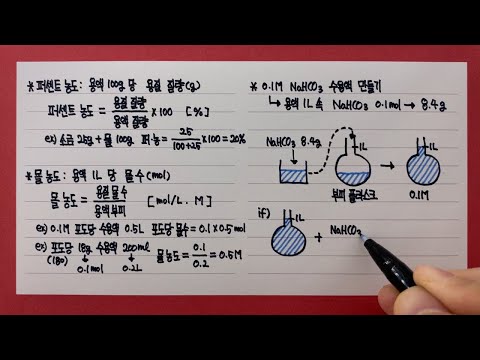 * 퍼센트 농도 : 용액 100g 당 용질 질량(g)
퍼센트 농도 = 용질 질량 / 용액 질량 × 100 [%]
ex) 소금 25g + 물 100g 퍼·농 = 25 / 100+25 × 100 = 20%
* 몰 농도 : 용액 1L 당 몰수(mol)
몰 농도 = 용질 몰수 / 용액 부피 [mol/L . M]
ex) 0.1M 포도당 수용액 0.5L 포도당 몰수 = 0.1 × 0.5 mol
ex) 포도당 18g 수용액 200ml 몰 농도 = 0.1 / 0.2 = 0.5M
(180) 0.1mol 0.2L
* 0.1M NaHCO3 수용액 만들기
↳ 용액 1L 속 NaHCO3 0.1mol → 8.4g
NaHCO3 8.4g
1L
1L
부피 플라스크
0.1M
if)
1L
+ NaHCO3